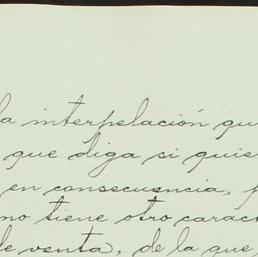 la interpelación que
que diga si quie
en consecuencia, p
no tiene otro carac
de venta, de la que